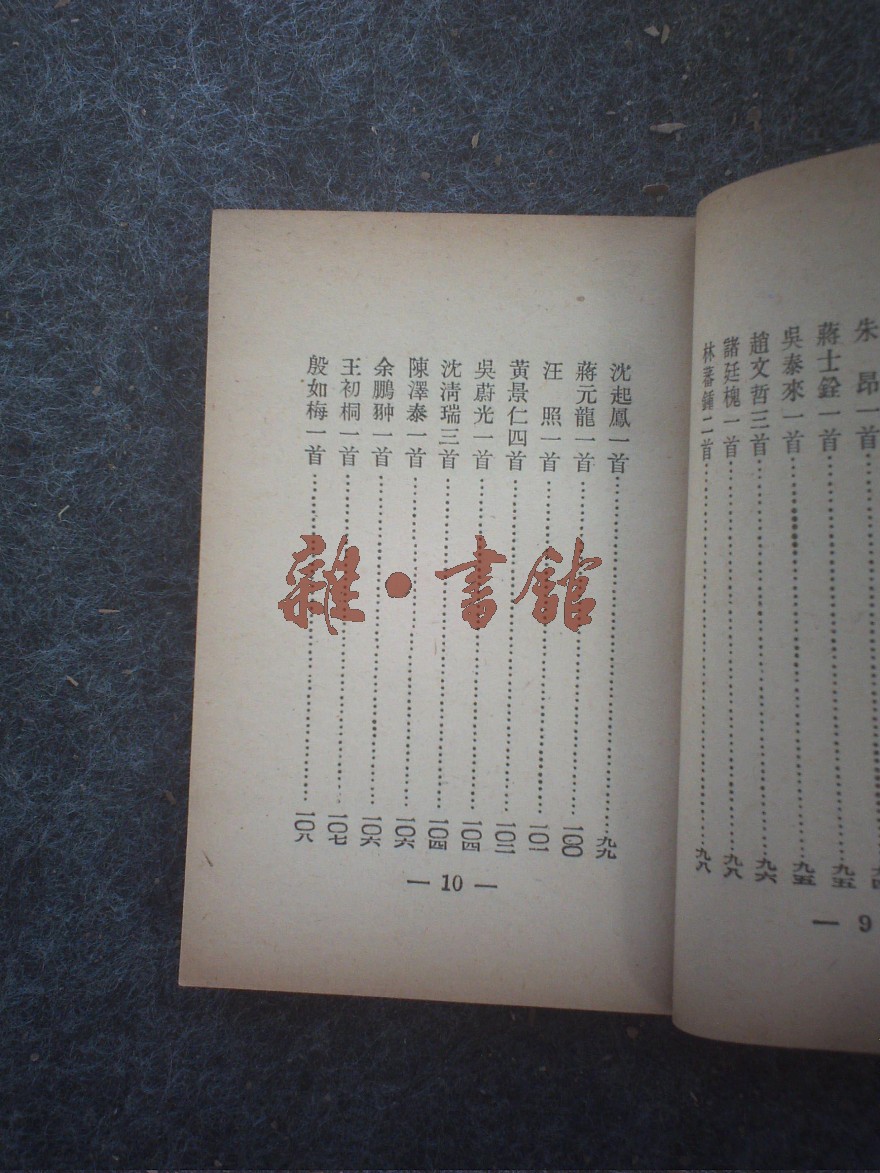 朱昂一首 九四
蔣士銓一首 九五
吳泰來一首 九五
趙文哲三首 九六
諸廷槐一首 九八
林蕃鍾二首 九八
— 9
沈起鳳一首 九九
蔣元龍一首 一〇〇
汪照一首 一〇一
黃景仁四首 一〇二
吳蔚光一首 一〇四
沈清瑞三首 一〇四
陳澤泰一首 一〇六
余鵬翀一首 一〇六
王初桐一首 一〇七
殷如梅一首 一〇八
— 10 —
雜·書館